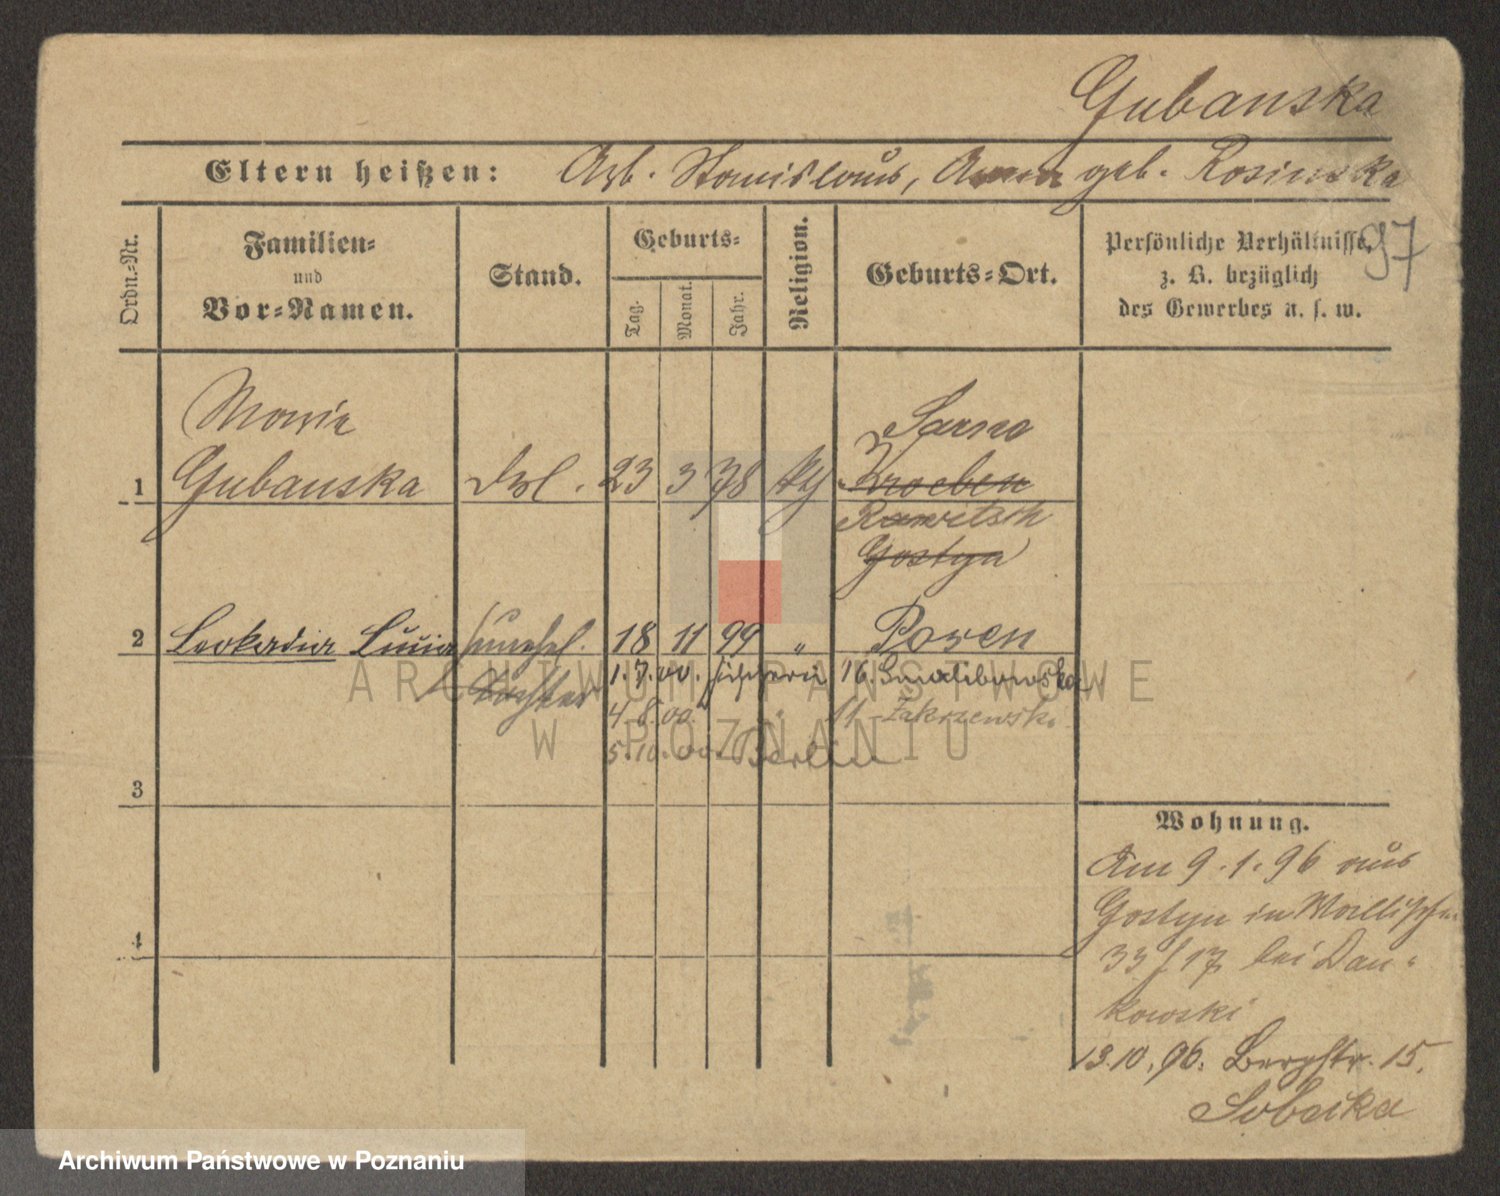 Gubanska
Eltern heißen: Arb. Stanislaus, Anna geb. Rosinska
97
Ordn.-Nr.
Familien-
und
Vor-Namen.
Stand.
Geburts-
Tag.
Monat.
Jahr.
Religion.
Geburts-Ort.
Persönliche Verhältnisse,
z. B. bezüglich
des Gewerbes u. s. w.
Marie
Sarne
1 Gubanska 23 3 78 Kroeben
Rawitsch
Gostyn
2 Leokadia 18 11 99 " Posen
Tochter 1. 7. 00. 16.
4 8. 00. " 11 Zakrzewski
5. 10. 00. Berlin
3
4
Wohnung.
Am 9. 1. 96 aus
Gostyn in Wallischei
33 f 17 bei Dan-
kowski
13. 10. 96. Bergstr. 15.
Sobecka
ARCHIWUM PAŃSTWOWE
W POZNANIU
Archiwum Państwowe w Poznaniu